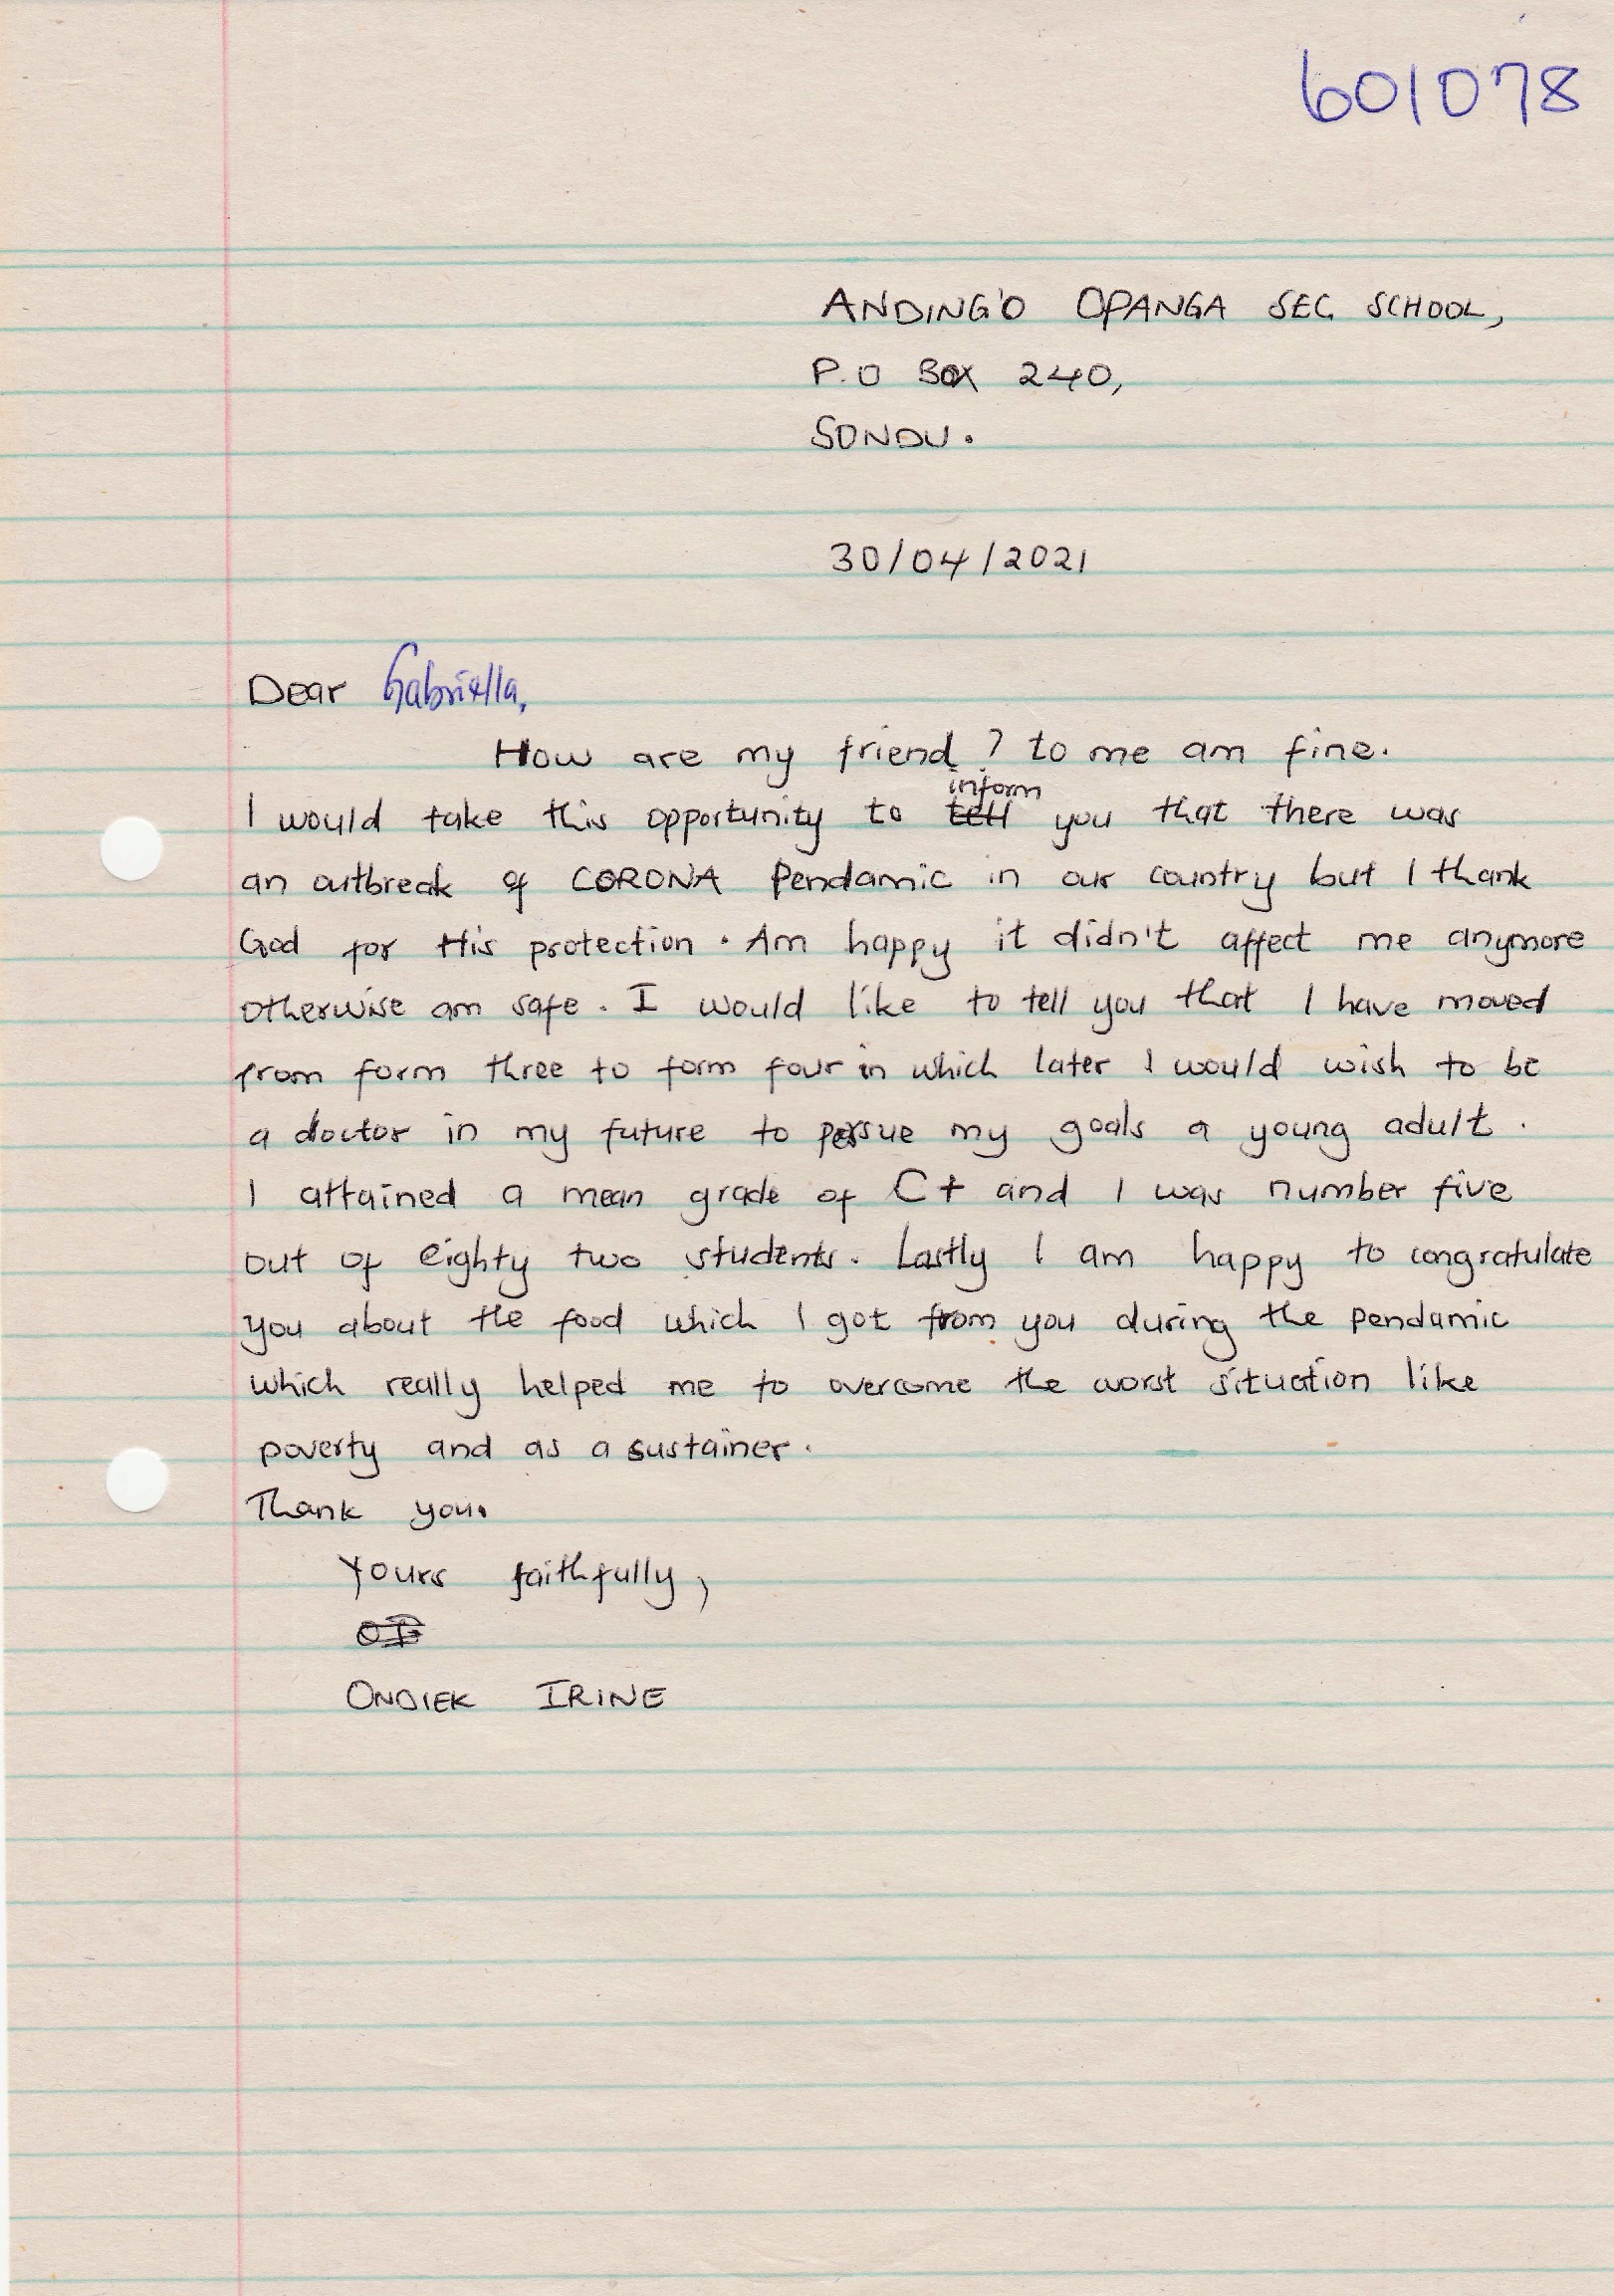 601078
ANDING'O OPANGA SEC SCHOOL,
P.O BOX 240,
SONDU.
30/04/2021
Dear Gabriella,
How are my friend ? to me am fine.
inform
I would take this opportunity to tell you that there was
an outbreak of CORONA Pendamic in our country but I thank
God for His protection. Am happy it didn't affect me anymore
otherwise am safe. I would like to tell you that I have moved
from form three to form four in which later I would wish to be
a doctor in my future to persue my goals a young adult.
I attained a mean grade of C+ and I was number five
out of eighty two students. Lastly I am happy to congratulate
you about the food which I got from you during the pendamic
which really helped me to overcome the worst situation like
poverty and as a sustainer.
Thank you.
Yours faithfully,
ONDIEK IRINE